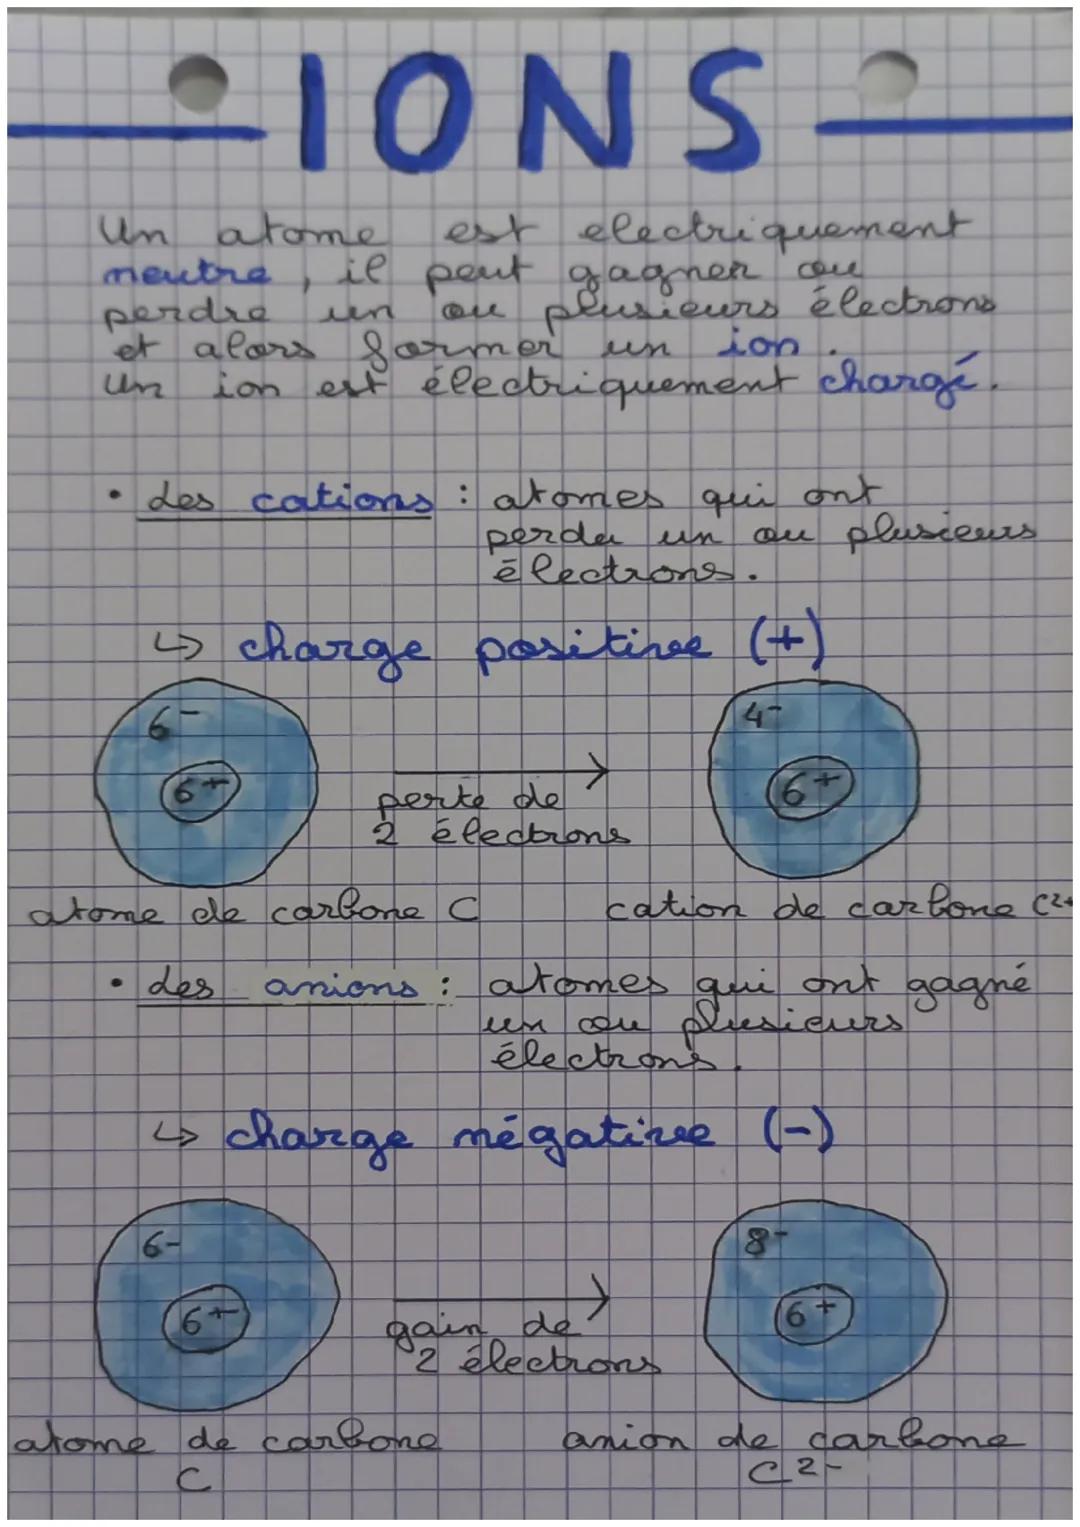 IONS
Un atome est electriquement
neutre, il peut gagner ou
perdre un ou plusieurs électrons
et alors former un ion.
Un ion est électriquement chargé.
• des cations : atomes qui ont
perdu un ou plusieurs
électrons.
↳ charge positive (+)
6- 4-
6+ 6+
perte de
2 électrons
atome de carbone C cation de carbone C2+
• des anions : atomes qui ont gagné
un ou plusieurs
électrons.
↳ charge négative (-)
6- 8-
6+ 6+
gain de
2 électrons
atome de carbone anion de carbone
C C2-